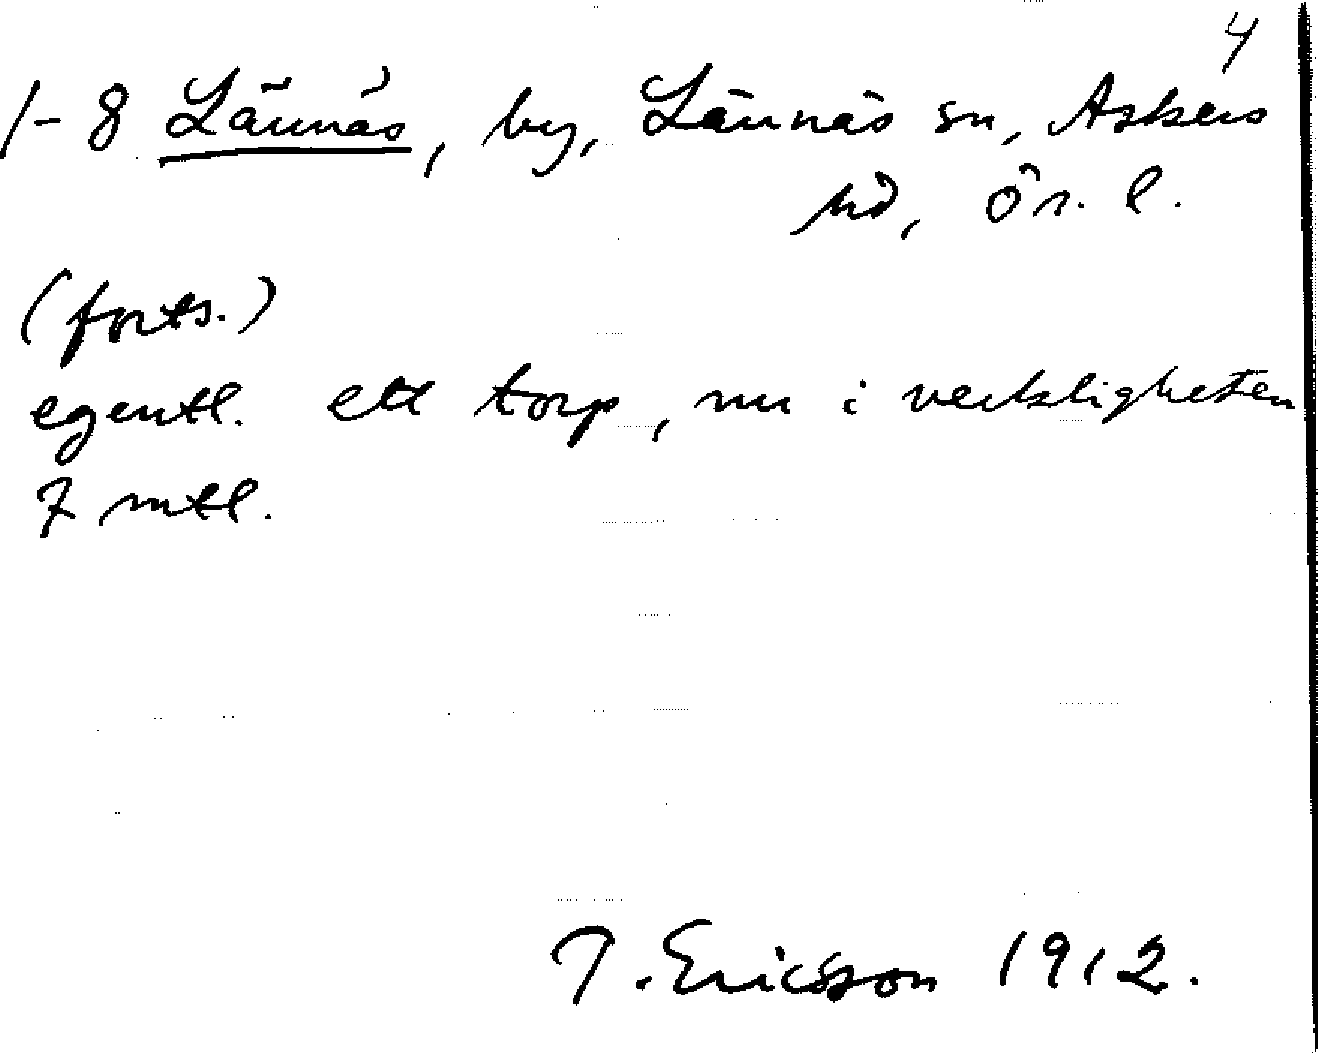 4
1-8 Lännäs, by, Lännäs sn, Askers
hd, Ör. l.
(forts.)
egentl. ett torp, nu i verkligheten
7 mtl.
T. Ericsson 1912.